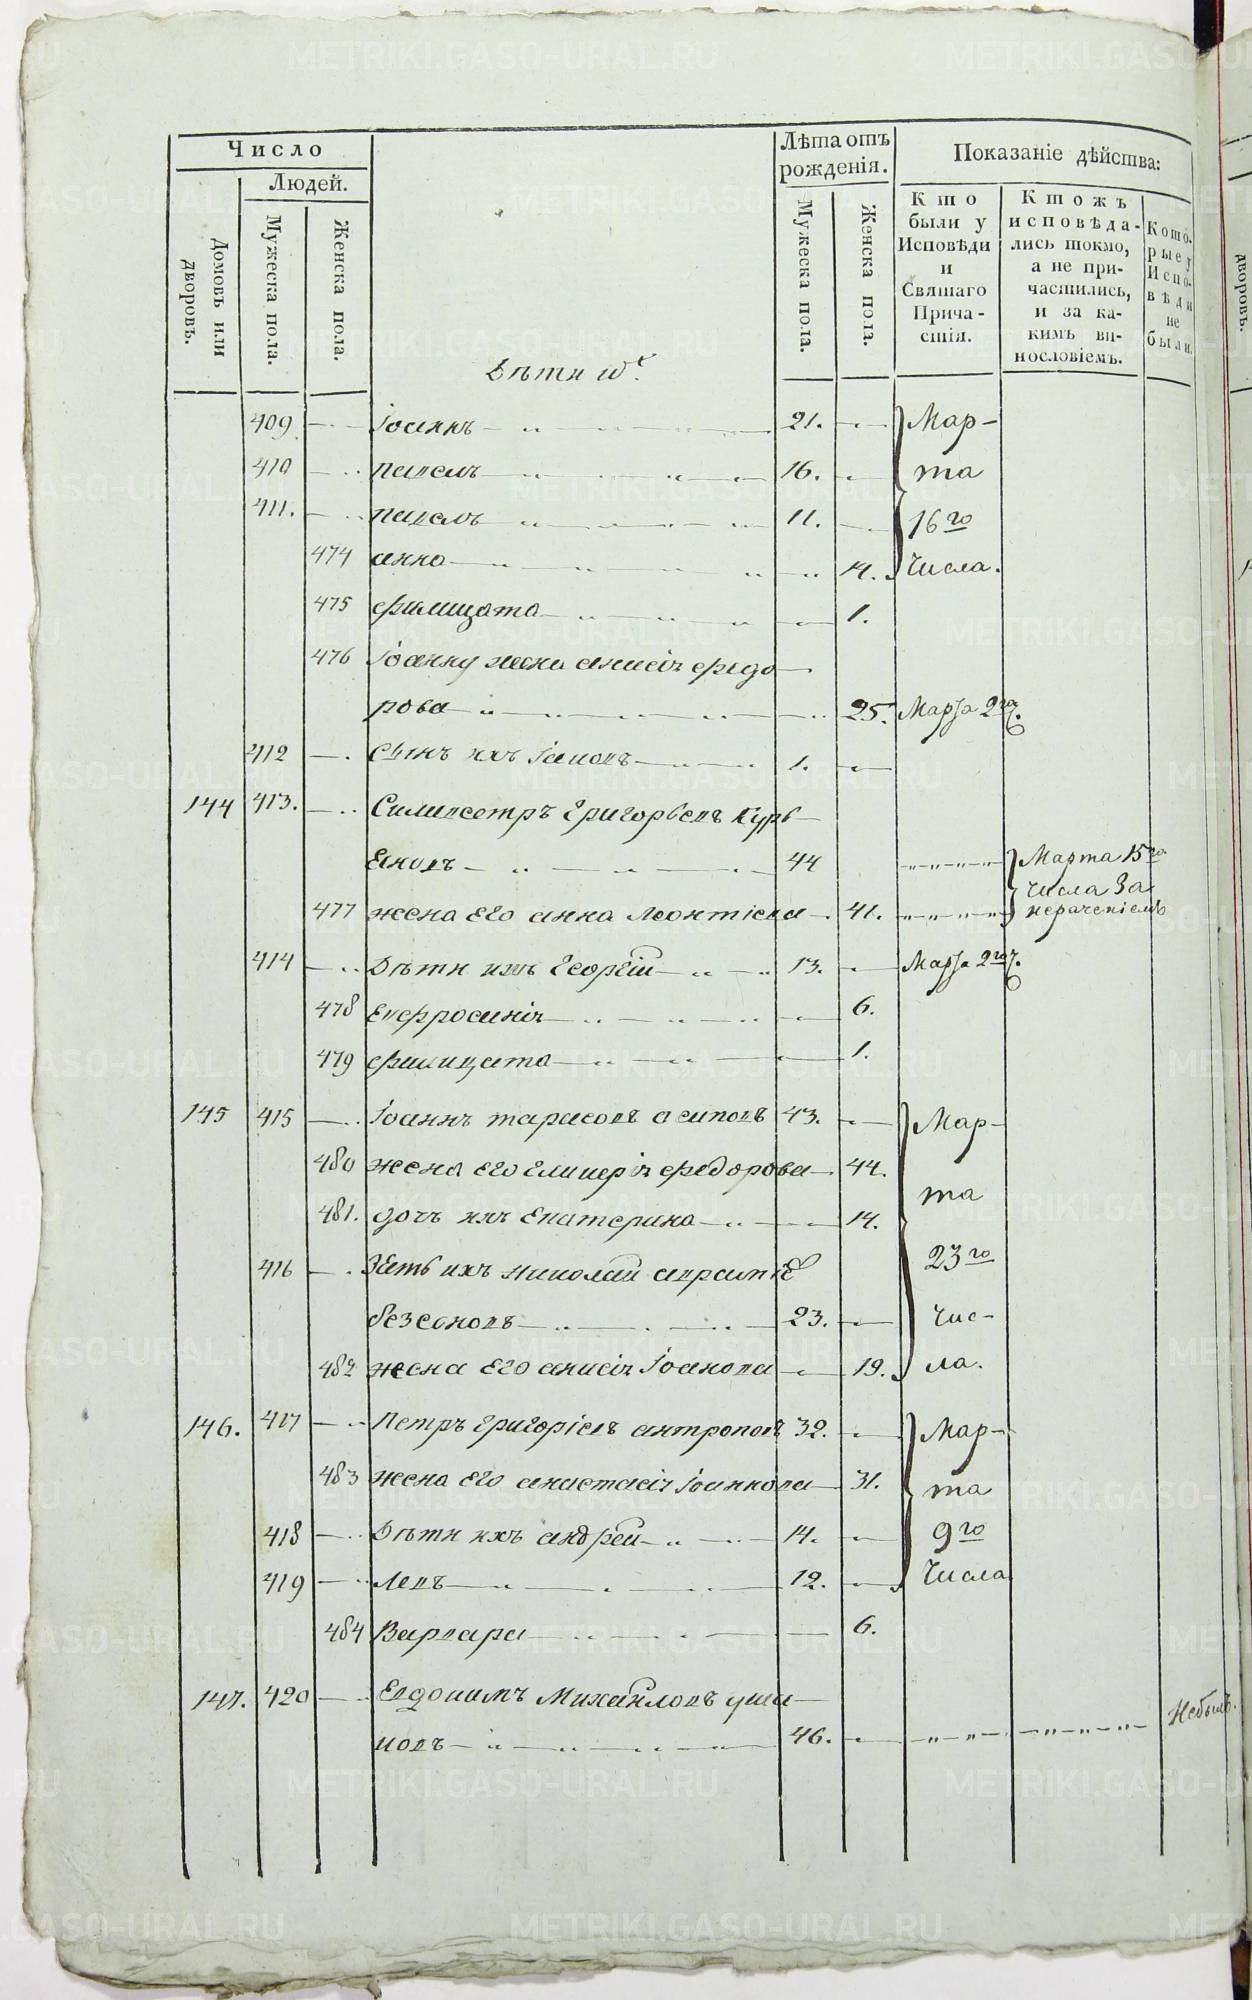 Число
Людей.
Домовъ или дворовъ.
Мужеска пола.
Женска пола.
Лѣта отъ рожденія.
Мужеска пола.
Женска пола.
Показаніе дѣйства:
Кто были у Исповѣди и Святаго Причастія.
Ктожъ исповѣдались токмо, а не причастились, и за какимъ винословіемъ.
Которые у Исповѣди не были.
Дѣти
409 Іоаннъ 21. Мар-
410 павелъ 16. та
411. павелъ 11. 16го
474 анна 14. Числа.
475 филицата 1.
476 Іоанну жена анисія федо-
рова 25. Марта 2го ч.
412 сынъ ихъ Іаковъ 1.
144 413. Силивестръ Григорьевъ Курь-
ановъ 44 Марта 15го
числа За
477 жена Его анна Леонтіева 41. нераченіемъ
414 Дѣти ихъ Георгій 13. Марта 2го ч.
478 Евфросинія 6.
479 филицата 1.
145 415 Іоаннъ тарасовъ осиповъ 43. Мар-
480 жена Его Гликерія федорова 44.
та
481. дочь ихъ Екатерина 14.
416 Зять ихъ николай 23го
безсоновъ 23. Чис-
482 жена Его анисія Іоанова 19. ла.
146. 417 Петръ Григоріевъ антроповъ 32. Мар-
483 жена Его анастасія Іоаннова 31. та
418 Дѣти ихъ андрей 14. 9го
419 Левъ 12. Числа
484 Варвара 6.
147. 420 Евдокимъ Михайловъ уша-
ковъ 46. Небылъ.
METRIKI.GASO-URAL.RU